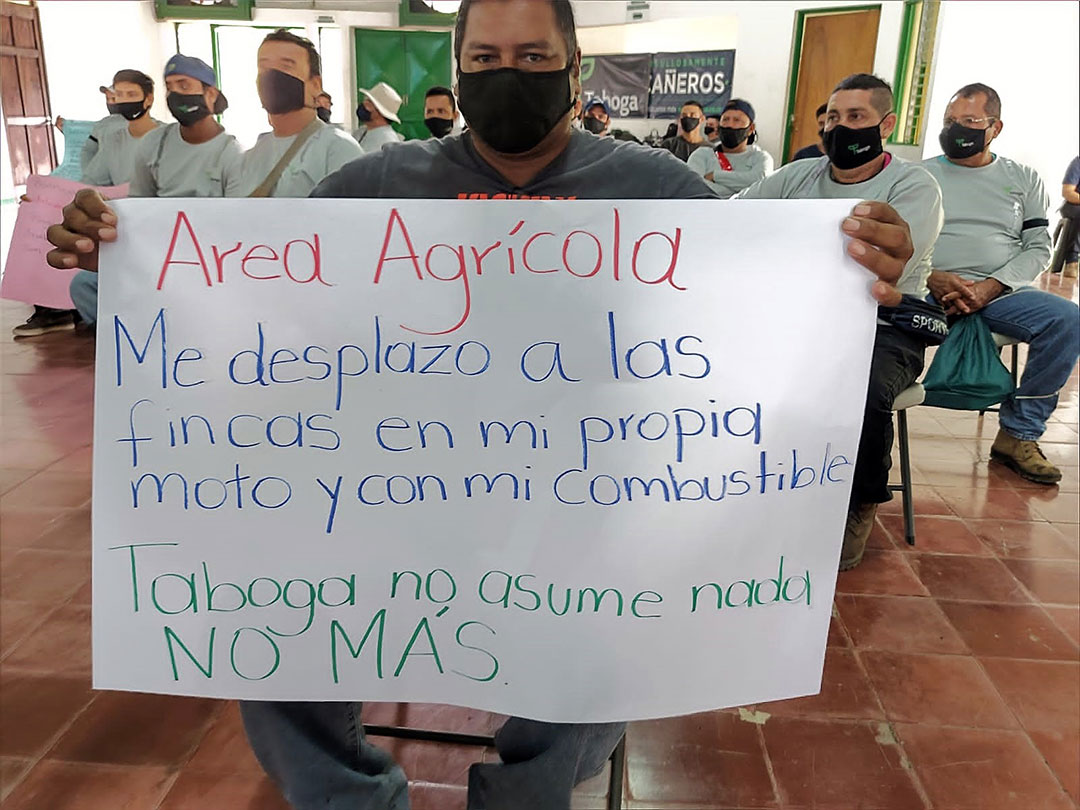 Taboga
AÑEROS
Area Agrícola
Me desplazo a las
fincas en mi propia
moto y con mi combustible
Taboga no asume nada
NO MÁS.